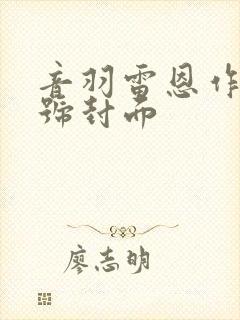 音羽雷恩作
號封面
廖志明